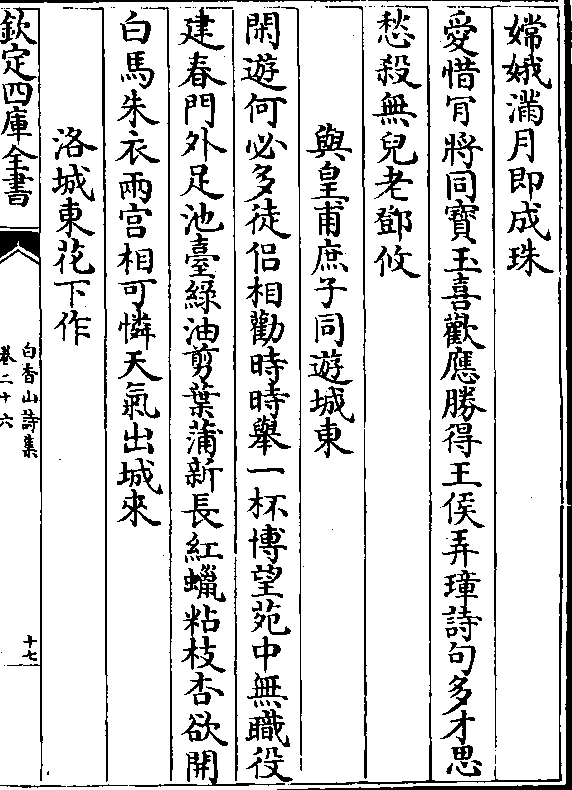 嫦娥滿月即成珠
愛惜肎將同寶玉喜歡應勝得王侯弄璋詩句多才思
愁殺無兒老鄧攸
與皇甫庶子同遊城東
閑遊何必多徒侶相勸時時舉一杯博望苑中無職役
建春門外足池臺綠油剪葉蒲新長紅蠟粘枝杏欲開
白馬朱衣兩宫相可憐天氣出城來
洛城東花下作
欽定四庫全書
白香山詩集
卷二十六
十七